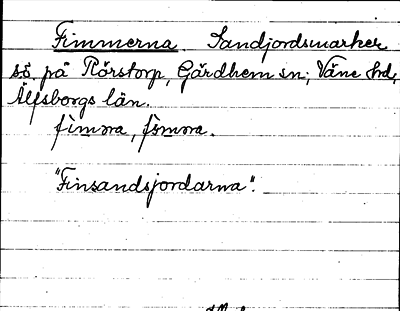 Fimmerna. Sandjordsmarker
sö på Rörstorp, Gärdhem sn; Väne hd,
Älfsborgs län.
"Finsandsjordarna".